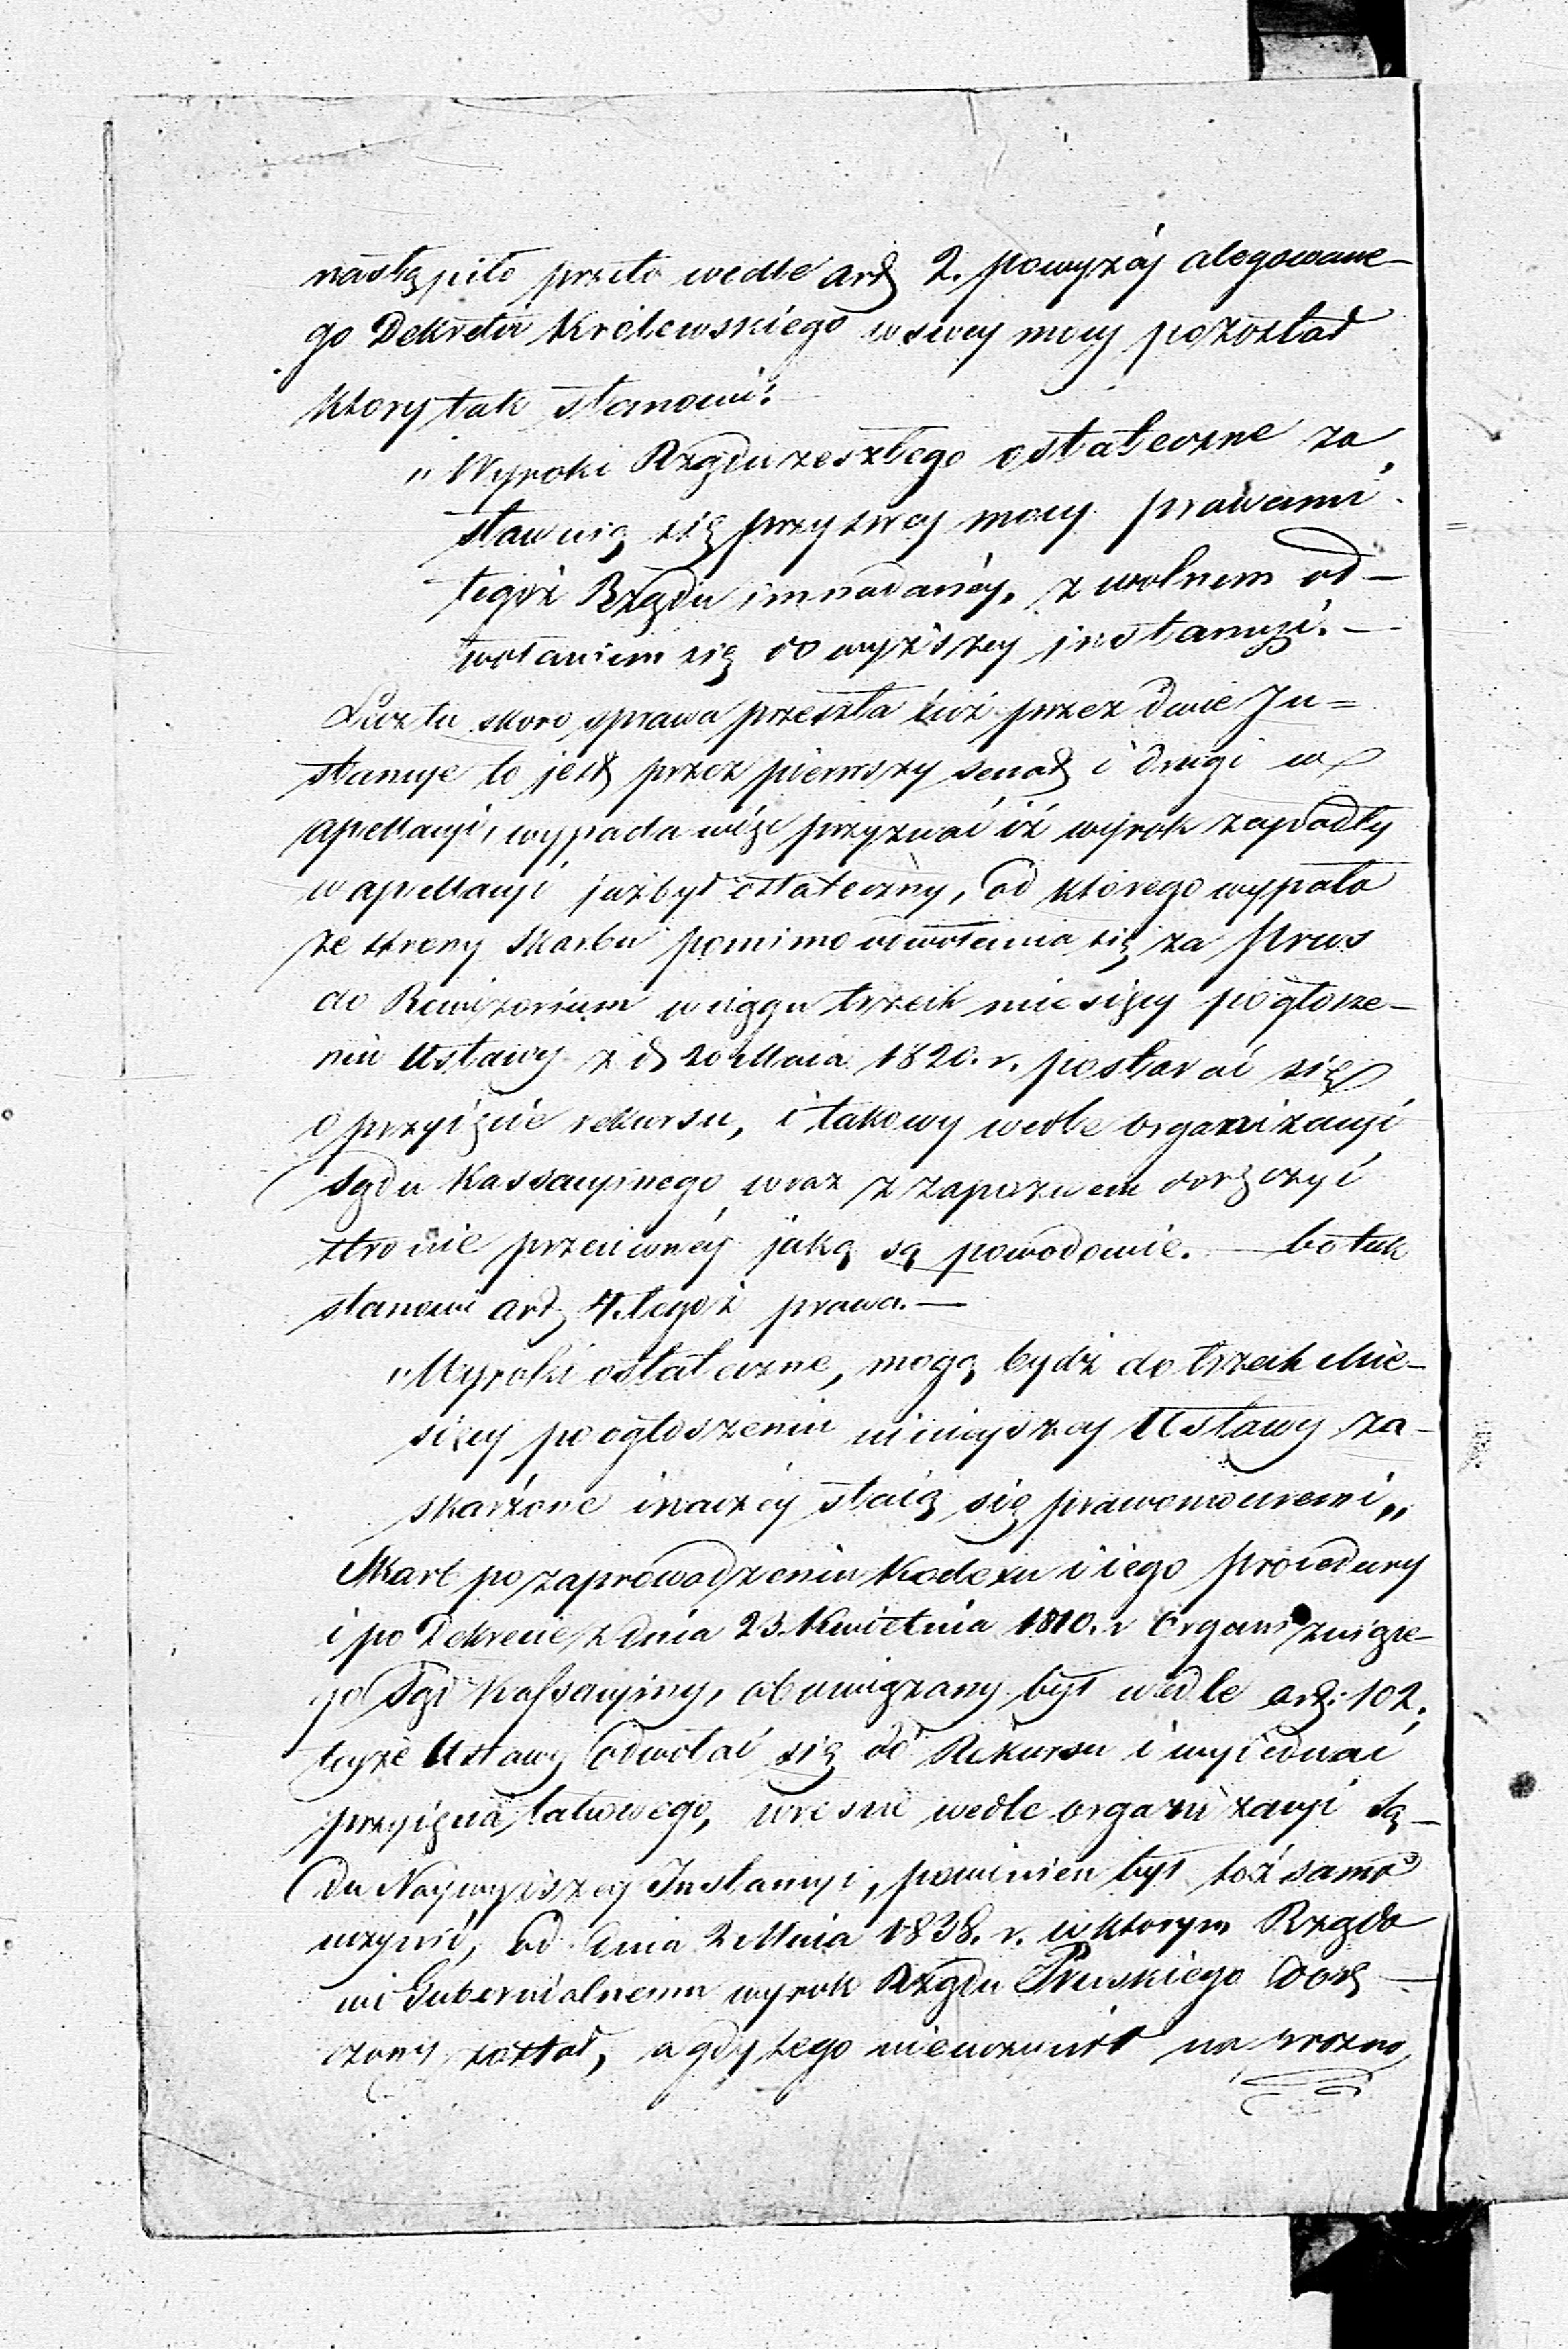 nastąpiło przeto wedle art 2. powyżéj alegowane-
go Dekretu Królewskiego w swey mocy pozostał
ktory tak stanowi:
"Wyroki Rządu zeszłego ostateczne zo
stawuią się przy swey mocy prawami
tegoż Rządu im nadanéy, z wolnem od-
wołaniem się do wyższey instancyi. —
Lecz tu skoro sprawa przeszła iuż przez dwie In=
stancye to jest przez pierwszy senat i drugi w
apellacyi, wypada więc przyznać iż wyrok zapadły
w apellacyi już był ostateczny, od którego wypało
ze strony Skarbu pomimo odwołania się za Prus
do Rewizorium w ciągu trzech miesięcy po ogłosze-
niu Ustawy z d 20 Maia 1820. r. postarać się
o przyięcie rekursu, i takowy wedle organizacyi
Sądu Kassacyinego wraz z zapozwem doręczyć
stronie przeciwnéy jaką są powodowie. — bo tak
stanowi art 4. tegoż prawa. —
"Wyroki ostateczne, mogą bydź do trzech Mie-
sięcy po ogłoszeniu ninieyszey Ustawy za-
skarżone inaczéy staią się prawomocnemi„
Skarb po zaprowadzeniu Kodexu i iego procedury
i po Dekrecie z dnia 23. Kwietnia 1810. r organizuiące-
go Sąd Kassacyiny, obowiązany był wedle art: 102.
teyże Ustawy odwołać się do Rekursu i wyiednać
przyięcia takowego, wrescie wedle organizacyi Są-
du Naywyższey Instancyi, powinien był toż samo
uczynić, od dnia 2 Maia 1838. r. w ktorym Rządo
wi Gubernialnemu wyrok Rządu Pruskiego dorę —
czony został, a gdy tego nieuczynił na prozno